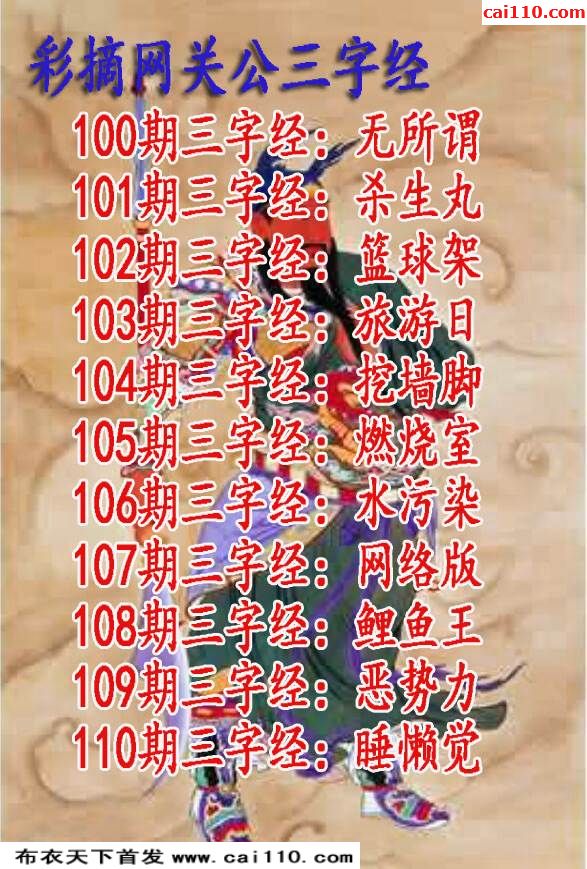 cai110.com
彩摘网关公三字经
100期三字经：无所谓
101期三字经：杀生丸
102期三字经：篮球架
103期三字经：旅游日
104期三字经：挖墙脚
105期三字经：燃烧室
106期三字经：水污染
107期三字经：网络版
108期三字经：鲤鱼王
109期三字经：恶势力
110期三字经：睡懒觉
布衣天下首发 www.cai110.com